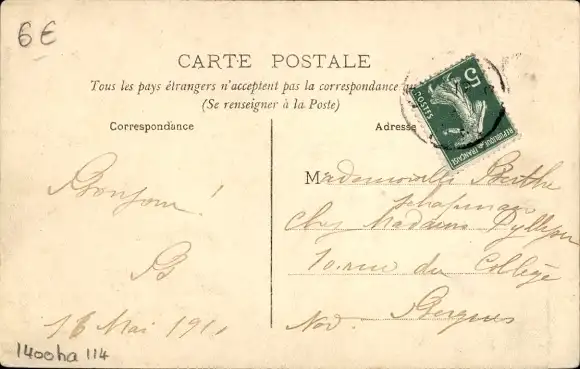 6€
CARTE POSTALE
Tous les pays étrangers n'acceptent pas la correspondance au
(Se renseigner à la Poste)
Correspondance
Adresse
5
POSTES
REPUBLIQUE FRANÇAISE
Bonjour !
B
16 Mai 191
Mademoiselle Berthe
Chapman
Chez Madame
10. rue du Collège
Bergues
Nord.
1400ha 114